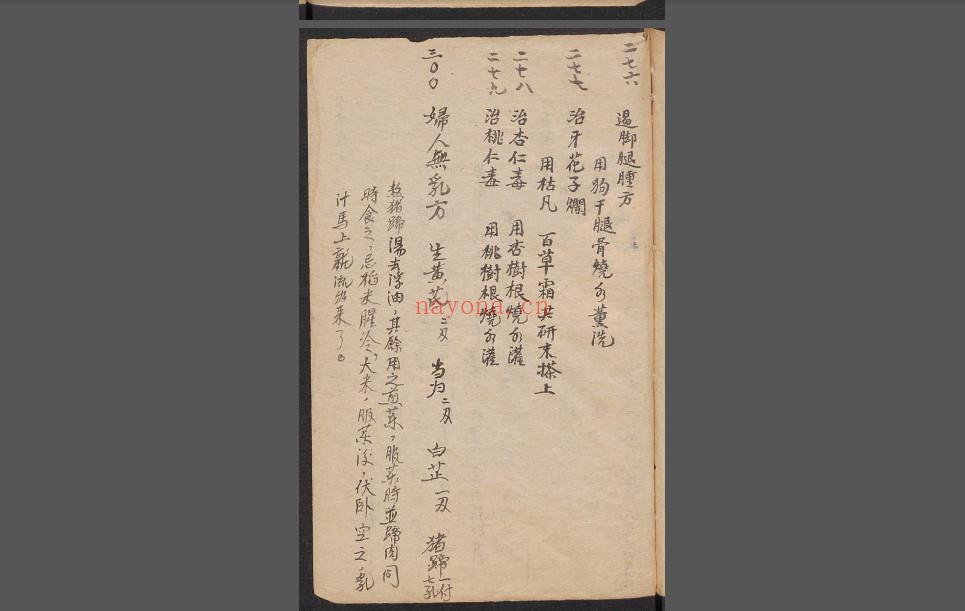 二七六 過脚腿腫方
用狗干腿骨燒水薰洗
二七七 治牙花子爛
用枯凡 百草霜 共研末搽上
二七八 治杏仁毒 用杏樹根燒水灌
二七九 治桃仁毒 用桃樹根燒水灌
三〇〇 婦人無乳方 生黃芪二刄 当归二刄 白芷一刄 猪蹄一付七孔
熬猪蹄湯去浮油,其餘用之煎葯,服葯時並蹄肉同
時食之,忌稻米腥冷,大米,服葯後,伏卧空之乳
汁馬上就流出来了。
nayona.cn